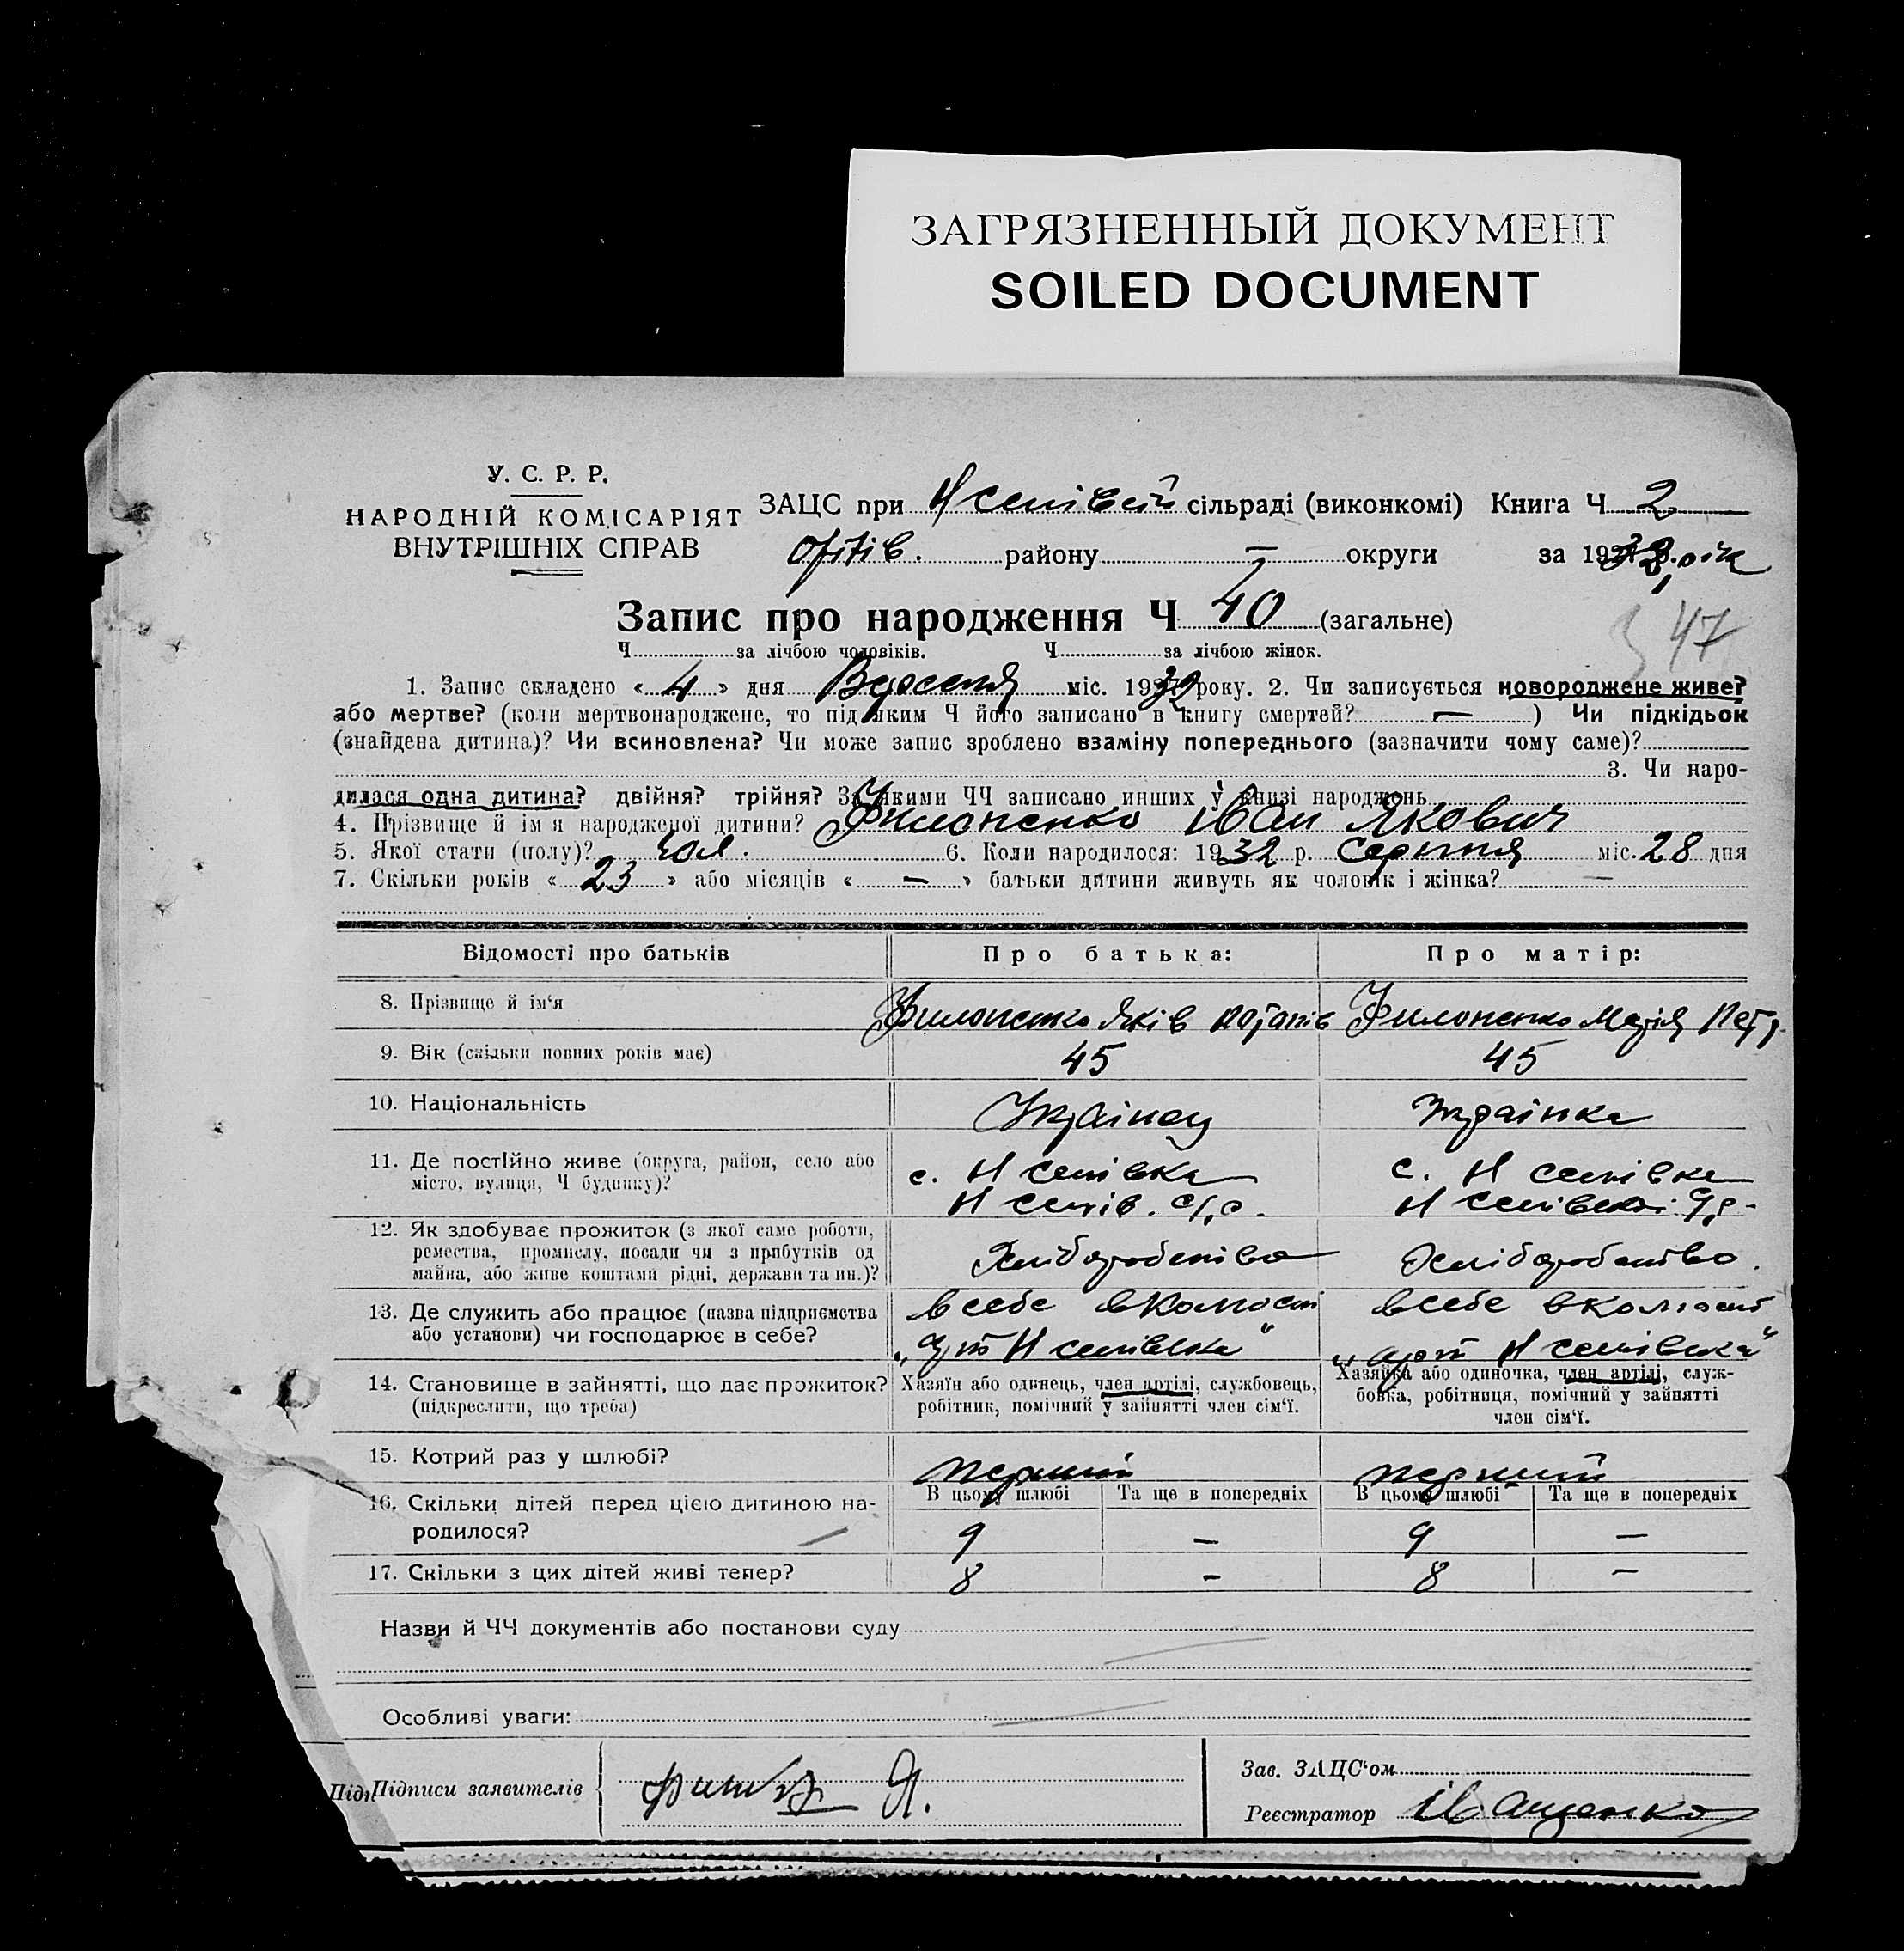 ЗАГРЯЗНЕННЫЙ ДОКУМЕНТ
SOILED DOCUMENT
У. С. Р. Р.
НАРОДНІЙ КОМІСАРІЯТ
ВНУТРІШНІХ СПРАВ
ЗАЦС при сільраді (виконкомі) Книга Ч 2
району — округи за 1932 рік
Запис про народження Ч 40 (загальне)
347
Ч за лічбою чоловіків. Ч за лічбою жінок.
1. Запис складено « 4 » дня Вересня міс. 1932 року. 2. Чи записується новороджене живе?
або мертве? (коли мертвонароджене, то під яким Ч його записано в книгу смертей? — ) Чи підкідьок
(знайдена дитина)? Чи всиновлена? Чи може запис зроблено взаміну попереднього (зазначити чому саме)?
3. Чи наро-
дилася одна дитина? двійня? трійня? За якими ЧЧ записано инших у книзі народжень
4. Прізвище й ім'я народженої дитини? Филоненко Іван Якович
5. Якої стати (полу)? чол. 6. Коли народилося: 1932 р. Серпня міс. 28 дня
7. Скільки років « 23 » або місяців « — » батьки дитини живуть як чоловік і жінка? —
Відомості про батьків Про батька: Про матір:
8. Прізвище й ім'я Филоненко Яків Потапів Филоненко Марія Петр.
9. Вік (скільки повних років має) 45 45
10. Національність Українец Українка
11. Де постійно живе (округа, район, село або
місто, вулиця, Ч будинку)?
12. Як здобуває прожиток (з якої саме роботи,
ремества, промислу, посади чи з прибутків од
майна, або живе коштами рідні, держави та ин.)?
Хліборобство Хліборобство.
13. Де служить або працює (назва підприємства
або установи) чи господарює в себе?
в себе в себе
14. Становище в зайнятті, що дає прожиток?
(підкреслити, що треба)
Хазяїн або одинець, член артілі, службовець,
робітник, помічний у зайнятті член сім'ї.
Хазяйка або одиночка, член артілі, служ-
бовка, робітниця, помічний у зайнятті
член сім'ї.
15. Котрий раз у шлюбі? перший перший
16. Скільки дітей перед цією дитиною на-
родилося?
В цьому шлюбі Та ще в попередніх В цьому шлюбі Та ще в попередніх
9 — 9 —
17. Скільки з цих дітей живі тепер? 8 - 8 —
Назви й ЧЧ документів або постанови суду
Особливі уваги:
Підписи заявителів Я.
Зав. ЗАЦС'ом
Реєстратор Іващенко